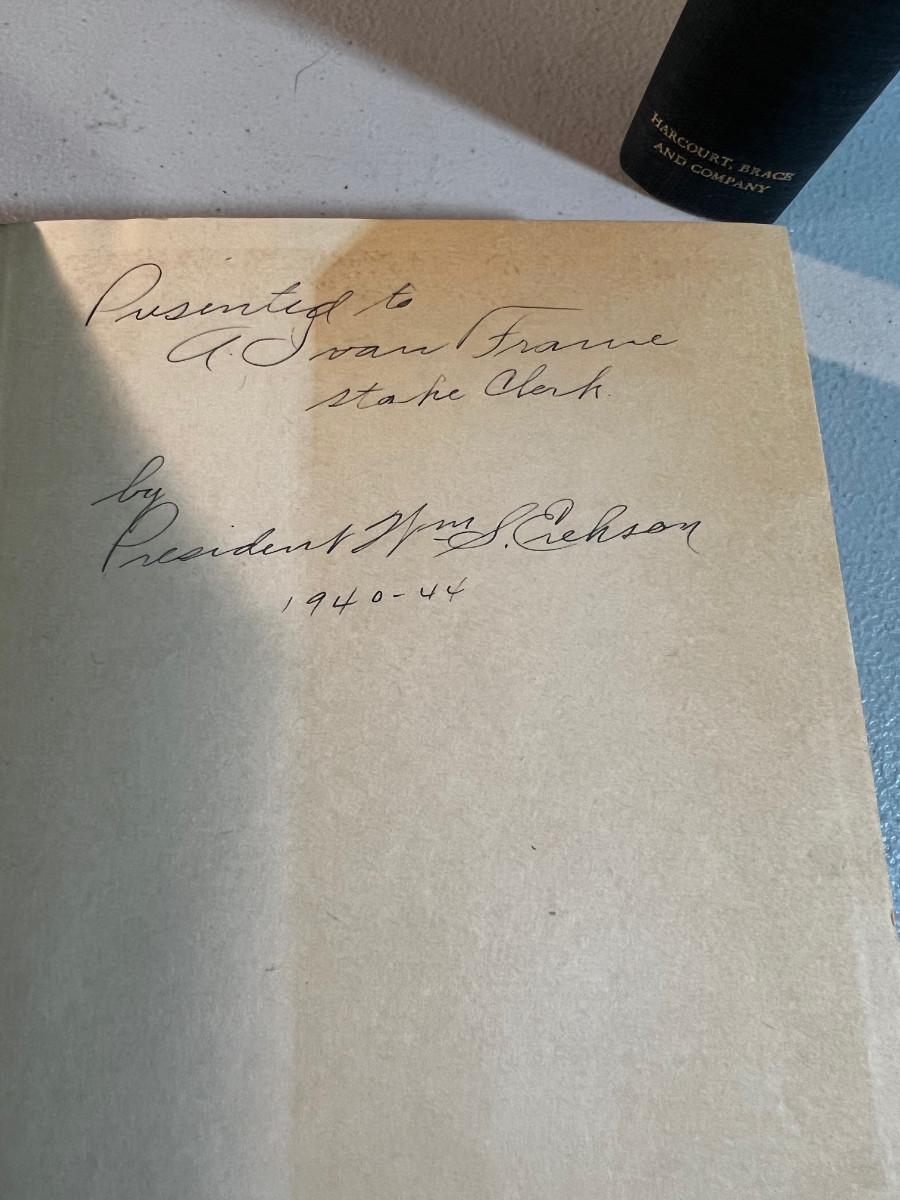 HARCOURT, BRACE
AND COMPANY
Presented to
A. Ivan Frame
Stake Clerk.
by
President Wm S. Erekson
1940-44